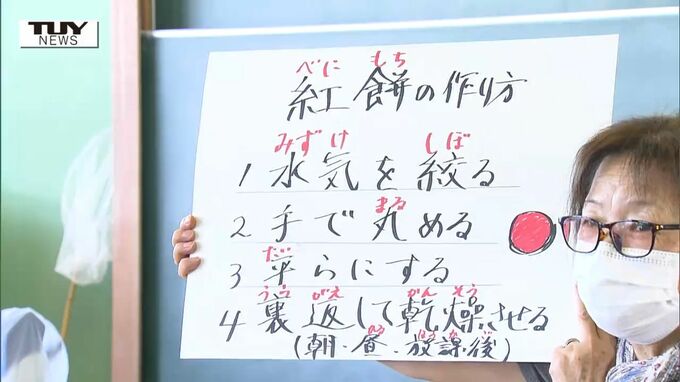 TUY
NEWS
べに もち
紅餅の作り方
みずけ しぼ
1 水気を絞る
まる
2 手で丸める
だい
3 平らにする
うら がえ かん そう
4 裏返して乾燥させる
(朝・昼・放課後)